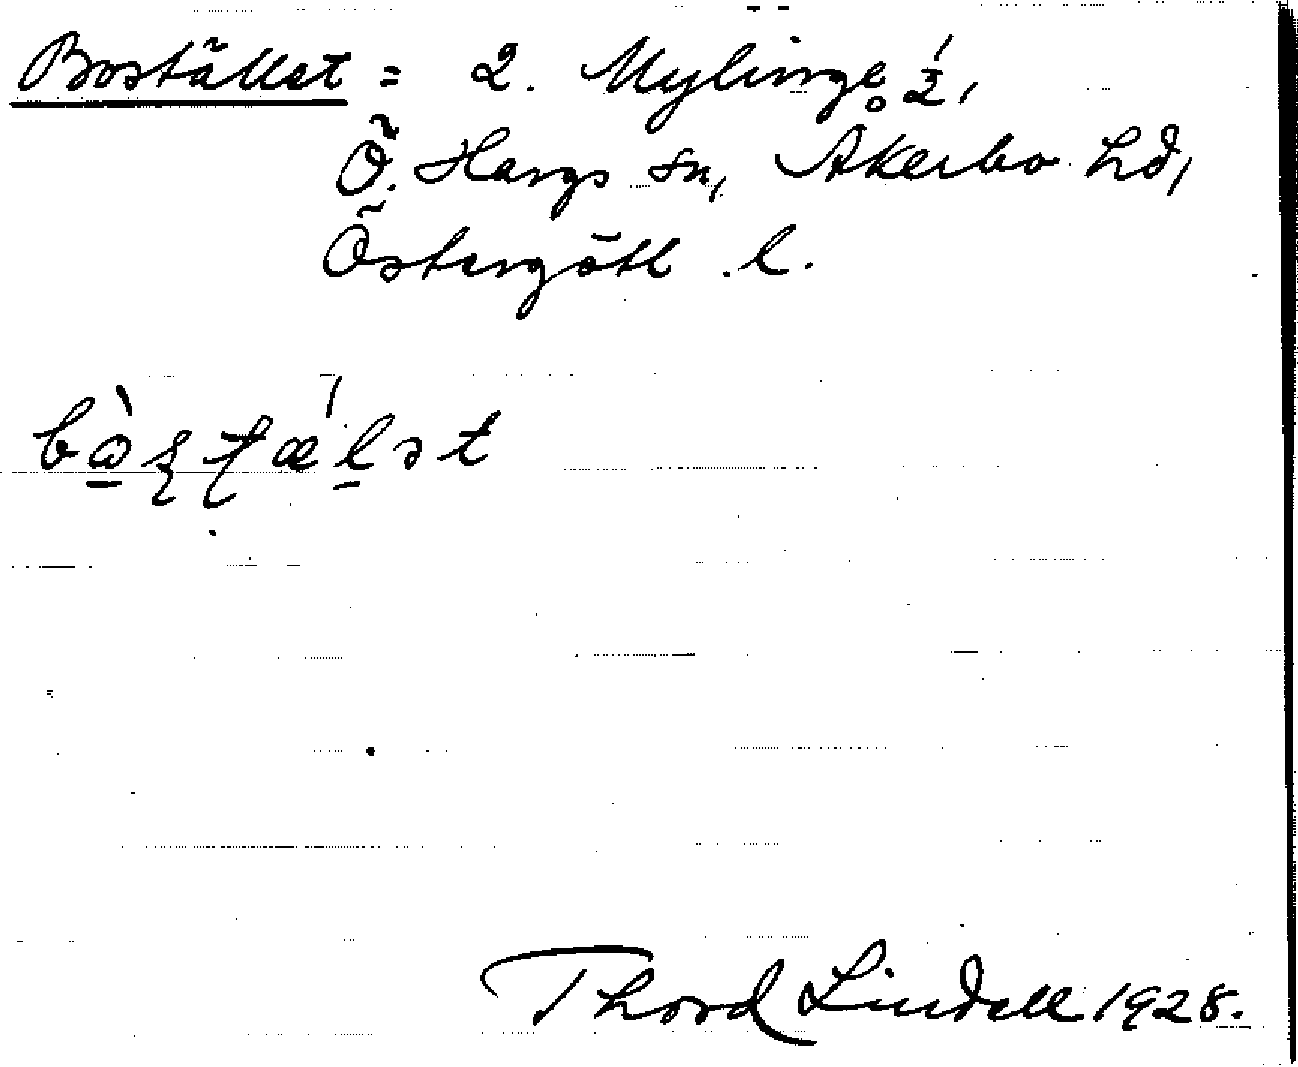 Bostället = 2. Mylinge 1/2,
Ö. Hargs sn, Åkerbo hd,
Östergötl. l.
Thord Lindell 1928.